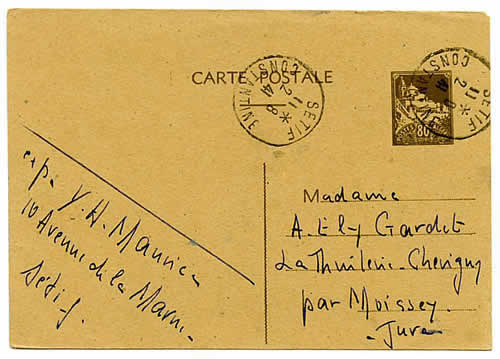 CARTE POSTALE
SETIF
CONSTANTINE
11 * 8
2 41
SETIF
CONSTANTINE
11 * 8
2 41
80
Madame
A. Ely Gardet
La Thuilerie-Chevigny
par Moissey.
Jura
exp. Y. H. Maurice
10 Avenue de la Marne
Sétif.